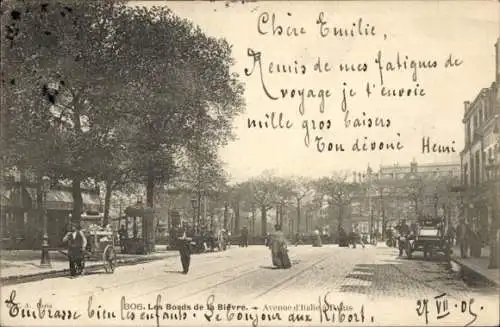 Chère Emilie,
Remis de mes fatigues de
voyage je t'envoie
mille gros baisers
Ton dévoué Henri
806. Les Bords de la Bièvre. — Avenue d'Italie
Embrasse bien les enfants. Le bonjour aux Ribort.
27-9-05